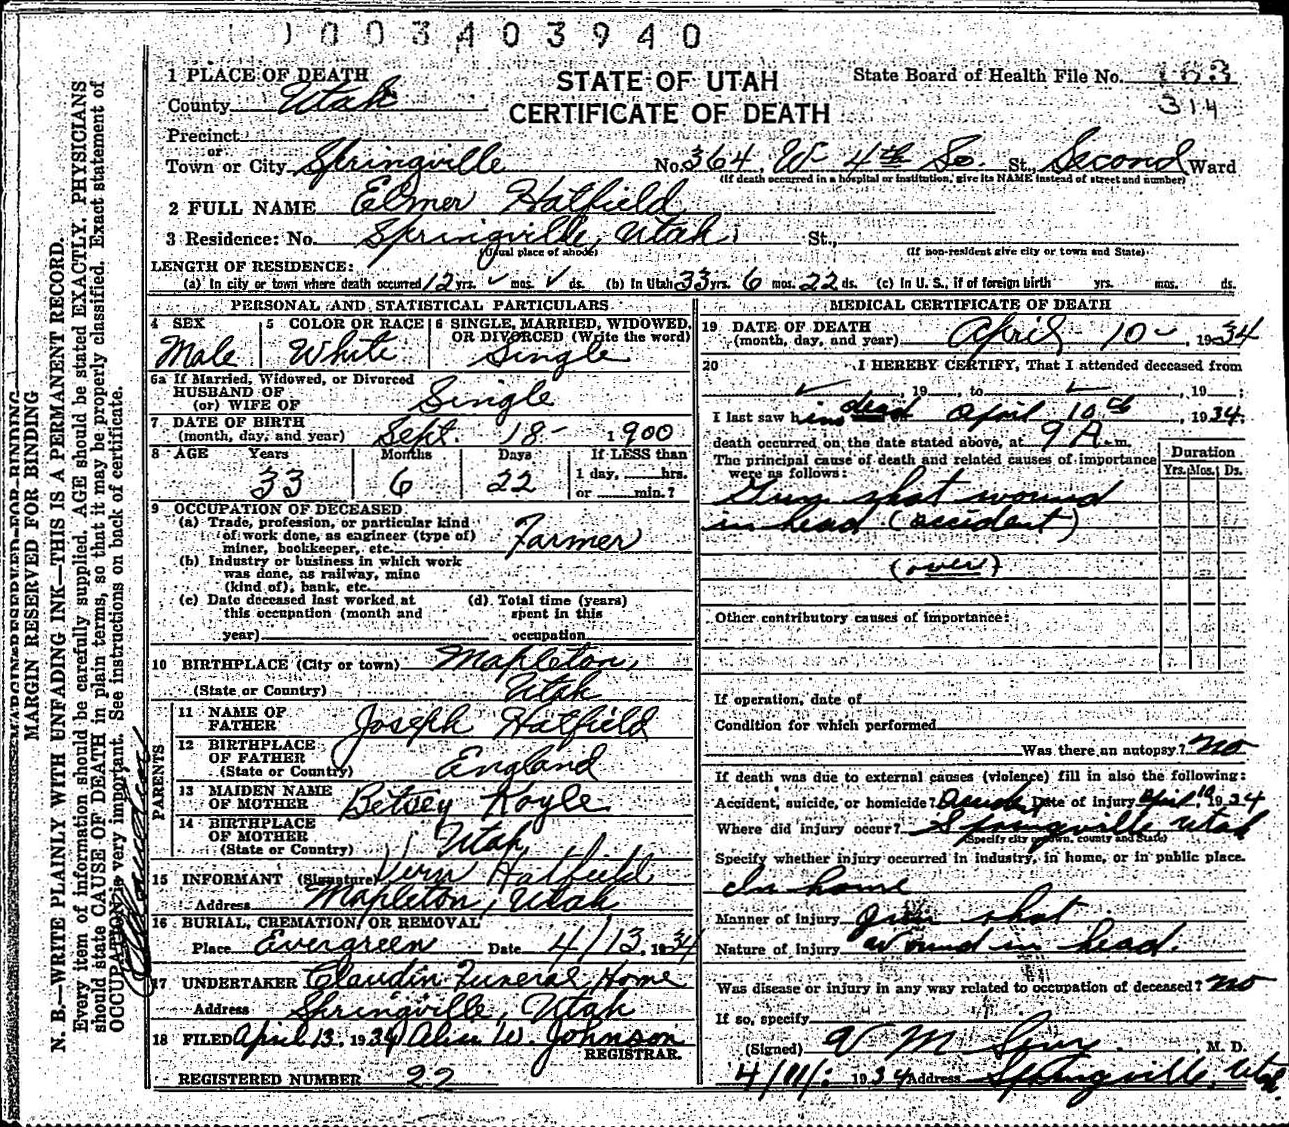 1003403940
STATE OF UTAH
CERTIFICATE OF DEATH
State Board of Health File No. 163
314
1 PLACE OF DEATH
County Utah
Precinct
or
Town or City Springville No. 364 W 4th So. St., Second Ward
(If death occurred in a hospital or institution, give its NAME instead of street and number)
2 FULL NAME Elmer Hatfield
3 Residence: No. Springville, Utah St.,
(Usual place of abode) (If non-resident give city or town and State)
LENGTH OF RESIDENCE:
(a) In city or town where death occurred 12 yrs. mos. ds. (b) In Utah 33 yrs. 6 mos. 22 ds. (c) In U. S., if of foreign birth yrs. mos. ds.
PERSONAL AND STATISTICAL PARTICULARS
4 SEX Male
5 COLOR OR RACE White
6 SINGLE, MARRIED, WIDOWED, OR DIVORCED (Write the word) Single
6a If Married, Widowed, or Divorced
HUSBAND OF
(or) WIFE OF Single
7 DATE OF BIRTH
(month, day, and year) Sept. 18- 1900
8 AGE Years Months Days If LESS than
33 6 22 1 day, hrs.
or min.?
9 OCCUPATION OF DECEASED
(a) Trade, profession, or particular kind
of work done, as engineer (type of)
miner, bookkeeper, etc. Farmer
(b) Industry or business in which work
was done, as railway, mine
(kind of), bank, etc.
(c) Date deceased last worked at
this occupation (month and
year)
(d) Total time (years)
spent in this
occupation
10 BIRTHPLACE (City or town) Mapleton,
(State or Country) Utah
PARENTS
11 NAME OF
FATHER Joseph Hatfield
12 BIRTHPLACE
OF FATHER England
(State or Country)
13 MAIDEN NAME
OF MOTHER Betsey Koyle
14 BIRTHPLACE
OF MOTHER Utah
(State or Country)
15 INFORMANT (Signature) Vern Hatfield
Address Mapleton, Utah
16 BURIAL, CREMATION, OR REMOVAL
Place Evergreen Date 4/13, 1934
17 UNDERTAKER Claudin Funeral Home
Address Springville, Utah
18 FILED April 13, 1934 Alice W. Johnson
REGISTRAR.
REGISTERED NUMBER 22
MEDICAL CERTIFICATE OF DEATH
19 DATE OF DEATH
(month, day, and year) April 10-, 1934
20 I HEREBY CERTIFY, That I attended deceased from
, 19 , to , 19 ;
I last saw him dead April 10th, 1934.
death occurred on the date stated above, at 9 A.m.
The principal cause of death and related causes of importance
were as follows:
Duration
Yrs. Mos. Ds.
Gun shot wound
in head (accident)
(over)
Other contributory causes of importance:
If operation, date of
Condition for which performed
Was there an autopsy? no
If death was due to external causes (violence) fill in also the following:
Accident, suicide, or homicide? Date of injury April 10 1934
Where did injury occur? Springville Utah
(Specify city or town, county and State)
Specify whether injury occurred in industry, in home, or in public place.
In home
Manner of injury Gun shot
Nature of injury Wound in head.
Was disease or injury in any way related to occupation of deceased? no
If so, specify
(Signed) V M , M. D.
4/11/: 1934 Address Springville, Utah.
MARGIN RESERVED FOR BINDING
MARGIN RESERVED FOR BINDING
N. B.—WRITE PLAINLY WITH UNFADING INK—THIS IS A PERMANENT RECORD.
Every item of information should be carefully supplied. AGE should be stated EXACTLY. PHYSICIANS
should state CAUSE OF DEATH in plain terms, so that it may be properly classified. Exact statement of
OCCUPATION is very important. See instructions on back of certificate.